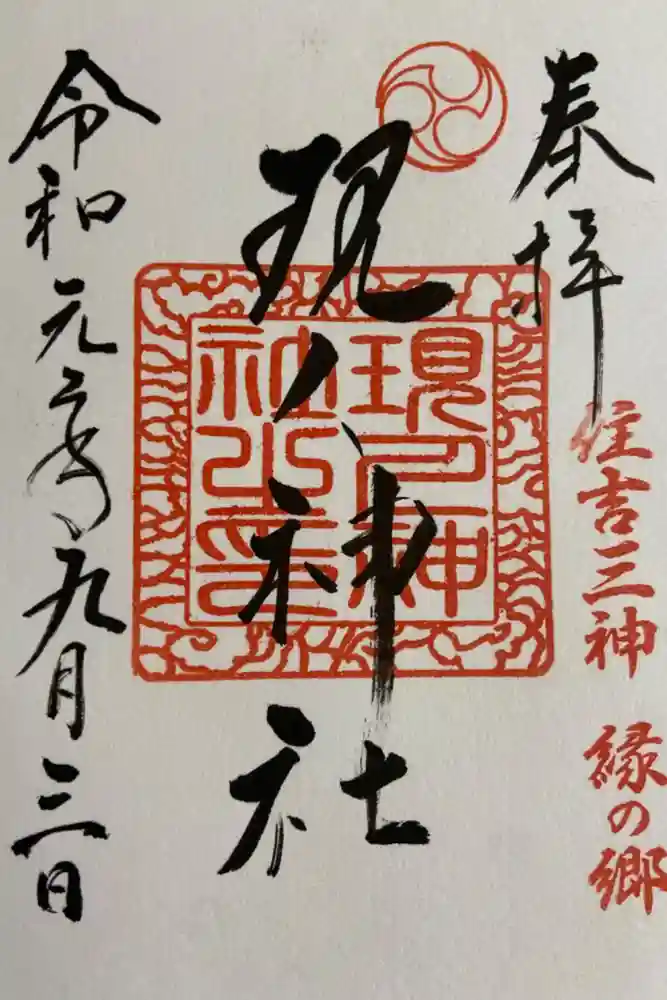 奉拝
住吉三神 縁の郷
現人神社
現人神社之印
令和元年九月三日